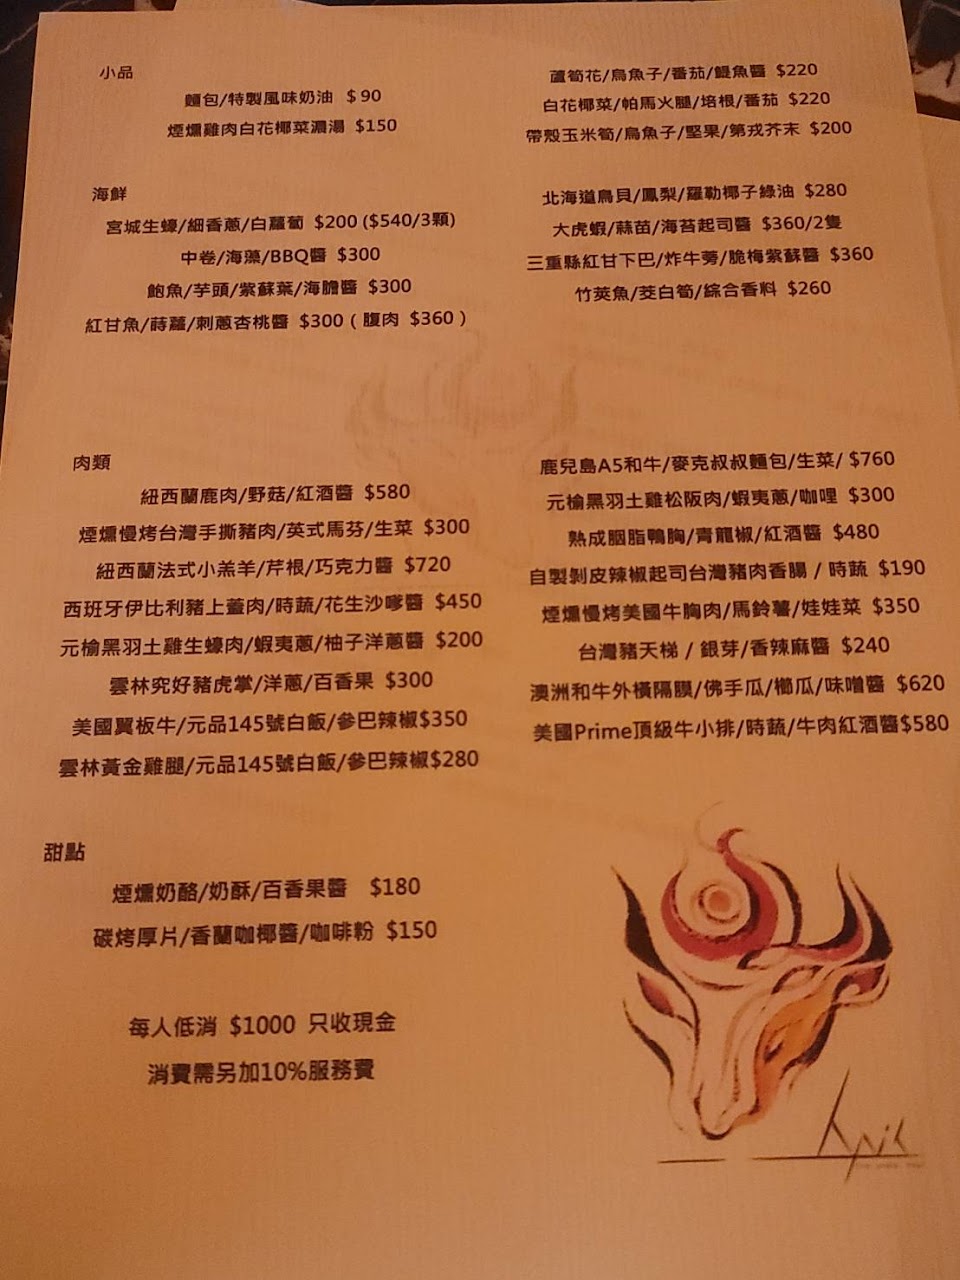 小品
麵包/特製風味奶油 $90
煙燻雞肉白花椰菜濃湯 $150
蘆筍花/烏魚子/番茄/鯷魚醬 $220
白花椰菜/帕馬火腿/培根/番茄 $220
帶殼玉米筍/烏魚子/堅果/第戎芥末 $200
海鮮
宮城生蠔/細香蔥/白蘿蔔 $200 ($540/3顆)
中卷/海藻/BBQ醬 $300
鮑魚/芋頭/紫蘇葉/海膽醬 $300
紅甘魚/蒔蘿/刺蔥杏桃醬 $300 ( 腹肉 $360 )
北海道鳥貝/鳳梨/羅勒椰子綠油 $280
大虎蝦/蒜苗/海苔起司醬 $360/2隻
三重縣紅甘下巴/炸牛蒡/脆梅紫蘇醬 $360
竹筴魚/茭白筍/綜合香料 $260
肉類
紐西蘭鹿肉/野菇/紅酒醬 $580
煙燻慢烤台灣手撕豬肉/英式馬芬/生菜 $300
紐西蘭法式小羔羊/芹根/巧克力醬 $720
西班牙伊比利豬上蓋肉/時蔬/花生沙嗲醬 $450
元榆黑羽土雞生蠔肉/蝦夷蔥/柚子洋蔥醬 $200
雲林究好豬虎掌/洋蔥/百香果 $300
美國翼板牛/元品145號白飯/參巴辣椒$350
雲林黃金雞腿/元品145號白飯/參巴辣椒$280
鹿兒島A5和牛/麥克叔叔麵包/生菜/ $760
元榆黑羽土雞松阪肉/蝦夷蔥/咖哩 $300
熟成胭脂鴨胸/青龍椒/紅酒醬 $480
自製剝皮辣椒起司台灣豬肉香腸 / 時蔬 $190
煙燻慢烤美國牛胸肉/馬鈴薯/娃娃菜 $350
台灣豬天梯 / 銀芽/香辣麻醬 $240
澳洲和牛外橫隔膜/佛手瓜/櫛瓜/味噌醬 $620
美國Prime頂級牛小排/時蔬/牛肉紅酒醬$580
甜點
煙燻奶酪/奶酥/百香果醬 $180
碳烤厚片/香蘭咖椰醬/咖啡粉 $150
每人低消 $1000 只收現金
消費需另加10%服務費